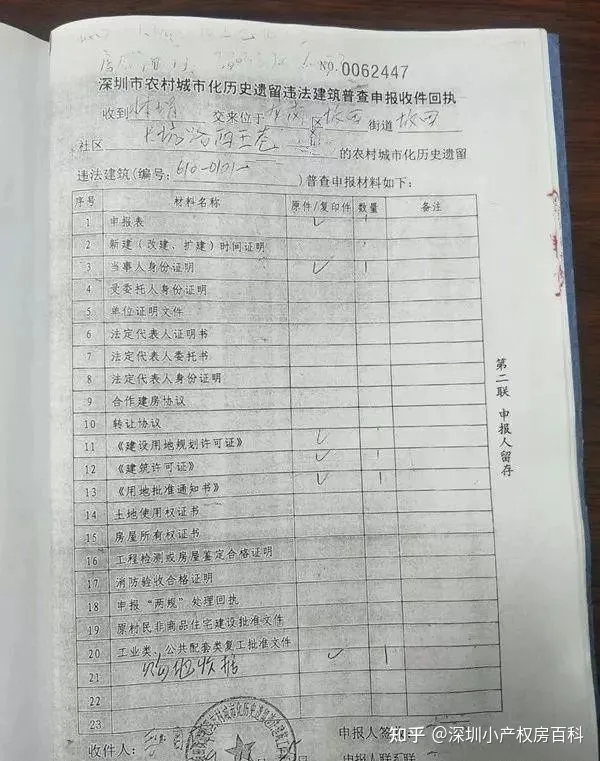 NO. 0062447
深圳市农村城市化历史遗留违法建筑普查申报收件回执
收到 交来位于 区 街道
社区 的农村城市化历史遗留
违法建筑(编号: 610-0101 )普查申报材料如下:
序号 材料名称 原件/复印件 数量 备注
1 申报表 ✓ 1
2 新建(改建、扩建)时间证明
3 当事人身份证明 ✓ 1
4 受委托人身份证明
5 单位证明文件
6 法定代表人证明书
7 法定代表人委托书
8 法定代表人身份证明
9 合作建房协议
10 转让协议
11 《建设用地规划许可证》 ✓ 1
12 《建筑许可证》 ✓ 1
13 《用地批准通知书》 ✓ 1
14 土地使用权证书
15 房屋所有权证书
16 工程检测或房屋鉴定合格证明
17 消防验收合格证明
18 申报“两规”处理回执
19 原村民非商品住宅建设批准文件
20 工业类、公共配套类复工批准文件 ✓ 1
21 收据
22
23
收件人: 申报人签
申报人联系
第二联 申报人留存
知乎 @深圳小产权房百科